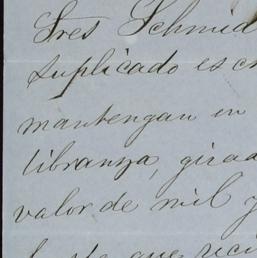 Sres Schmid
suplicado es
mantengan en
libranza, girad
valor de mil y
que reci